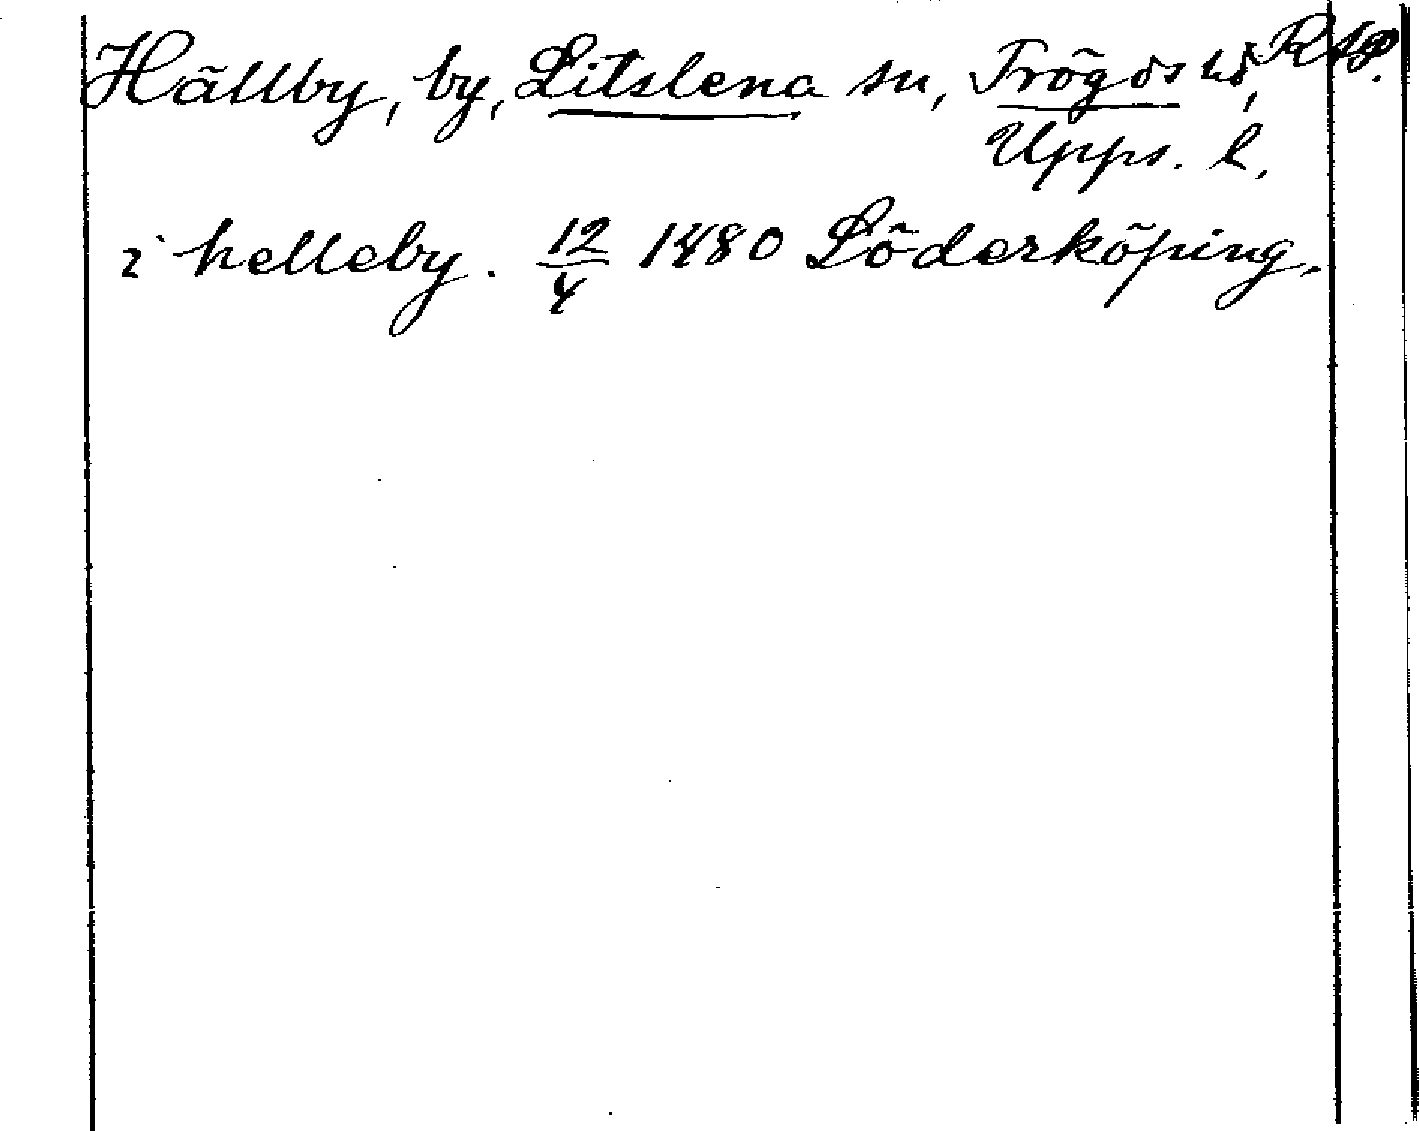 Hällby, by, Litslena sn, Trögds hd, RAP.
Upps. l.
i helleby. 12/4 1480 Söderköping.